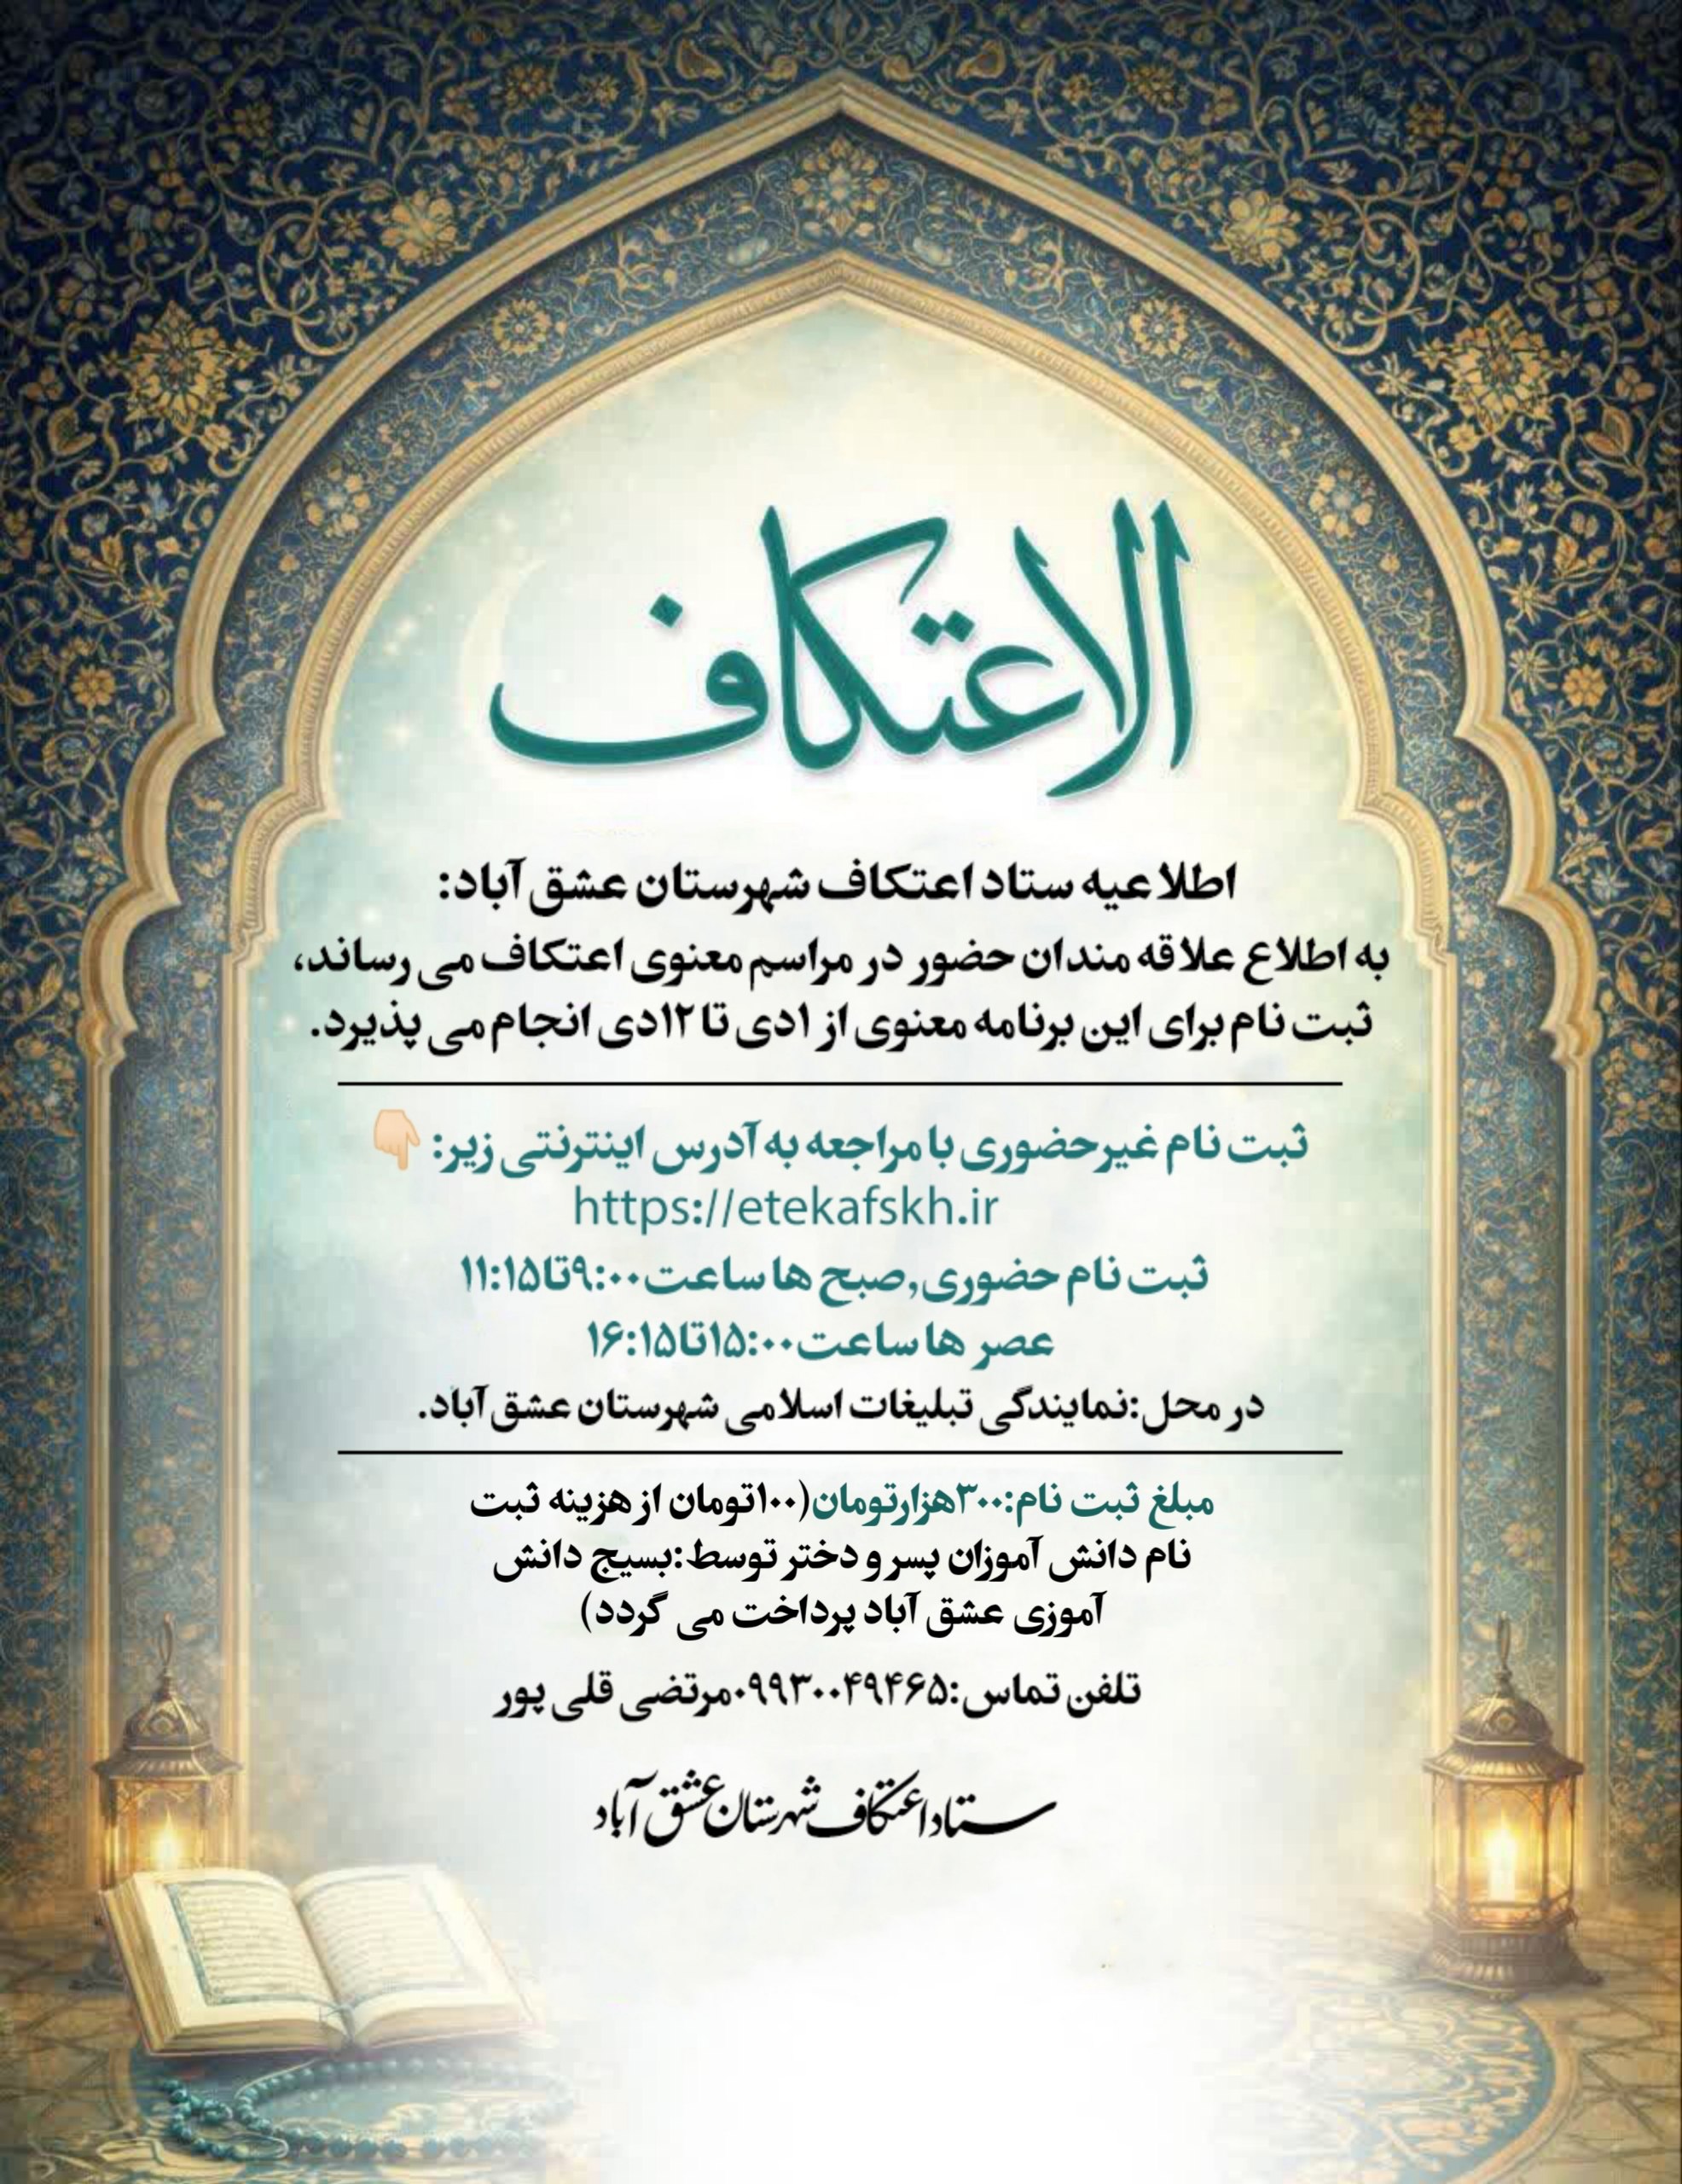 الاعتكاف
اطلاعیه ستاد اعتکاف شهرستان عشق آباد:
به اطلاع علاقه مندان حضور در مراسم معنوی اعتکاف می رساند،
ثبت نام برای این برنامه معنوی از ۱دی تا ۱۲دی انجام می پذیرد.
ثبت نام غیرحضوری با مراجعه به آدرس اینترنتی زیر: 👇🏻
https://etekafskh.ir
ثبت نام حضوری,صبح ها ساعت۹:۰۰تا۱۱:۱۵
عصر ها ساعت۱۵:۰۰تا۱۶:۱۵
در محل:نمایندگی تبلیغات اسلامی شهرستان عشق آباد.
مبلغ ثبت نام:۳۰۰هزارتومان(۱۰۰تومان از هزینه ثبت
نام دانش آموزان پسر و دختر توسط:بسیج دانش
آموزی عشق آباد پرداخت می گردد)
تلفن تماس:۰۹۹۳۰۰۴۹۴۶۵مرتضی قلی پور
ستاد اعتکاف شهرستان عشق آباد